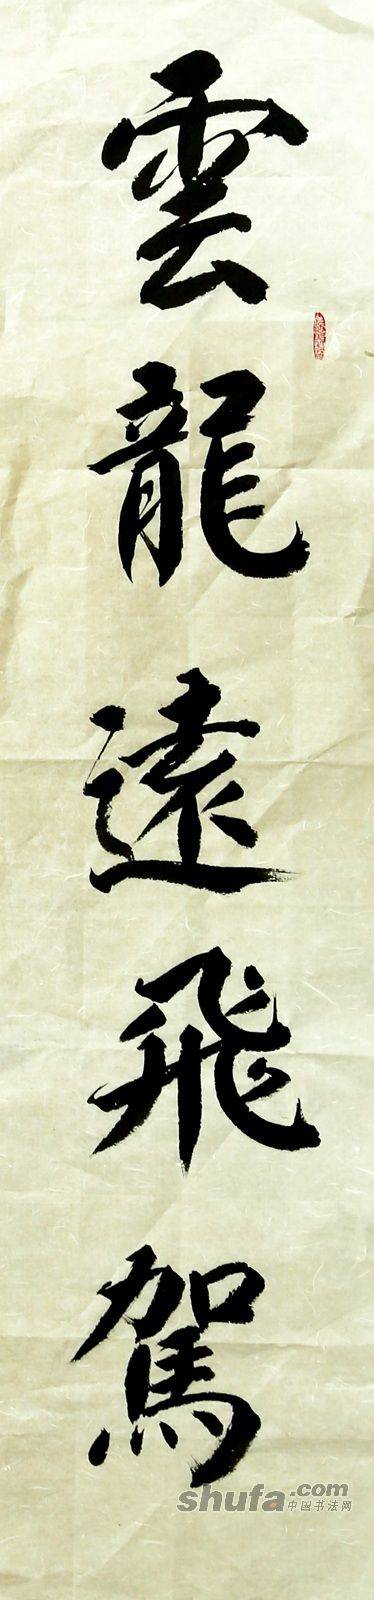 雲龍遠飛駕
shufa.com
中国书法网